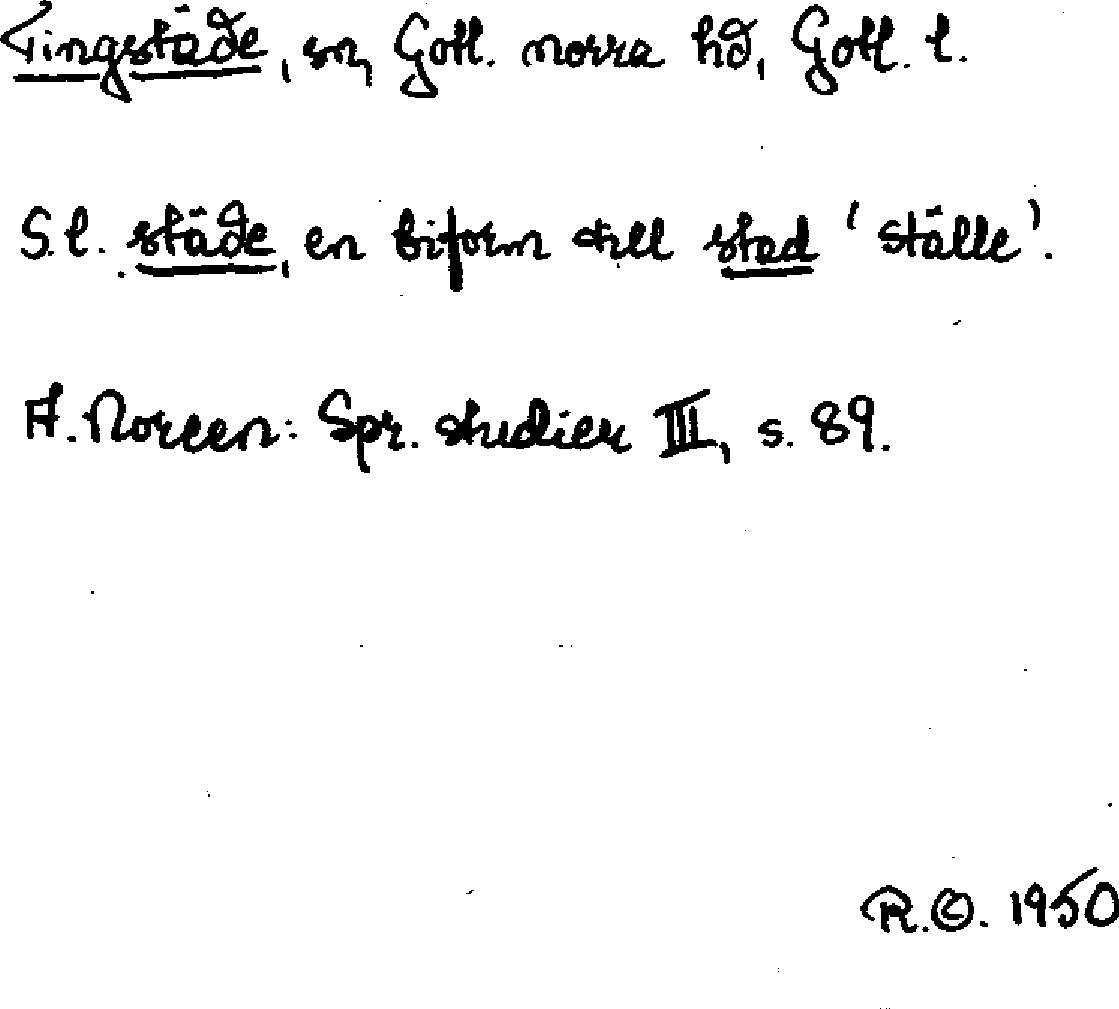 Tingstäde, sn, Gotl. norra hd, Gotl. l.
S.l. städe, en biform till stad 'ställe'.
A. Noreen: Spr. studier III, s. 89.
R.©. 1950